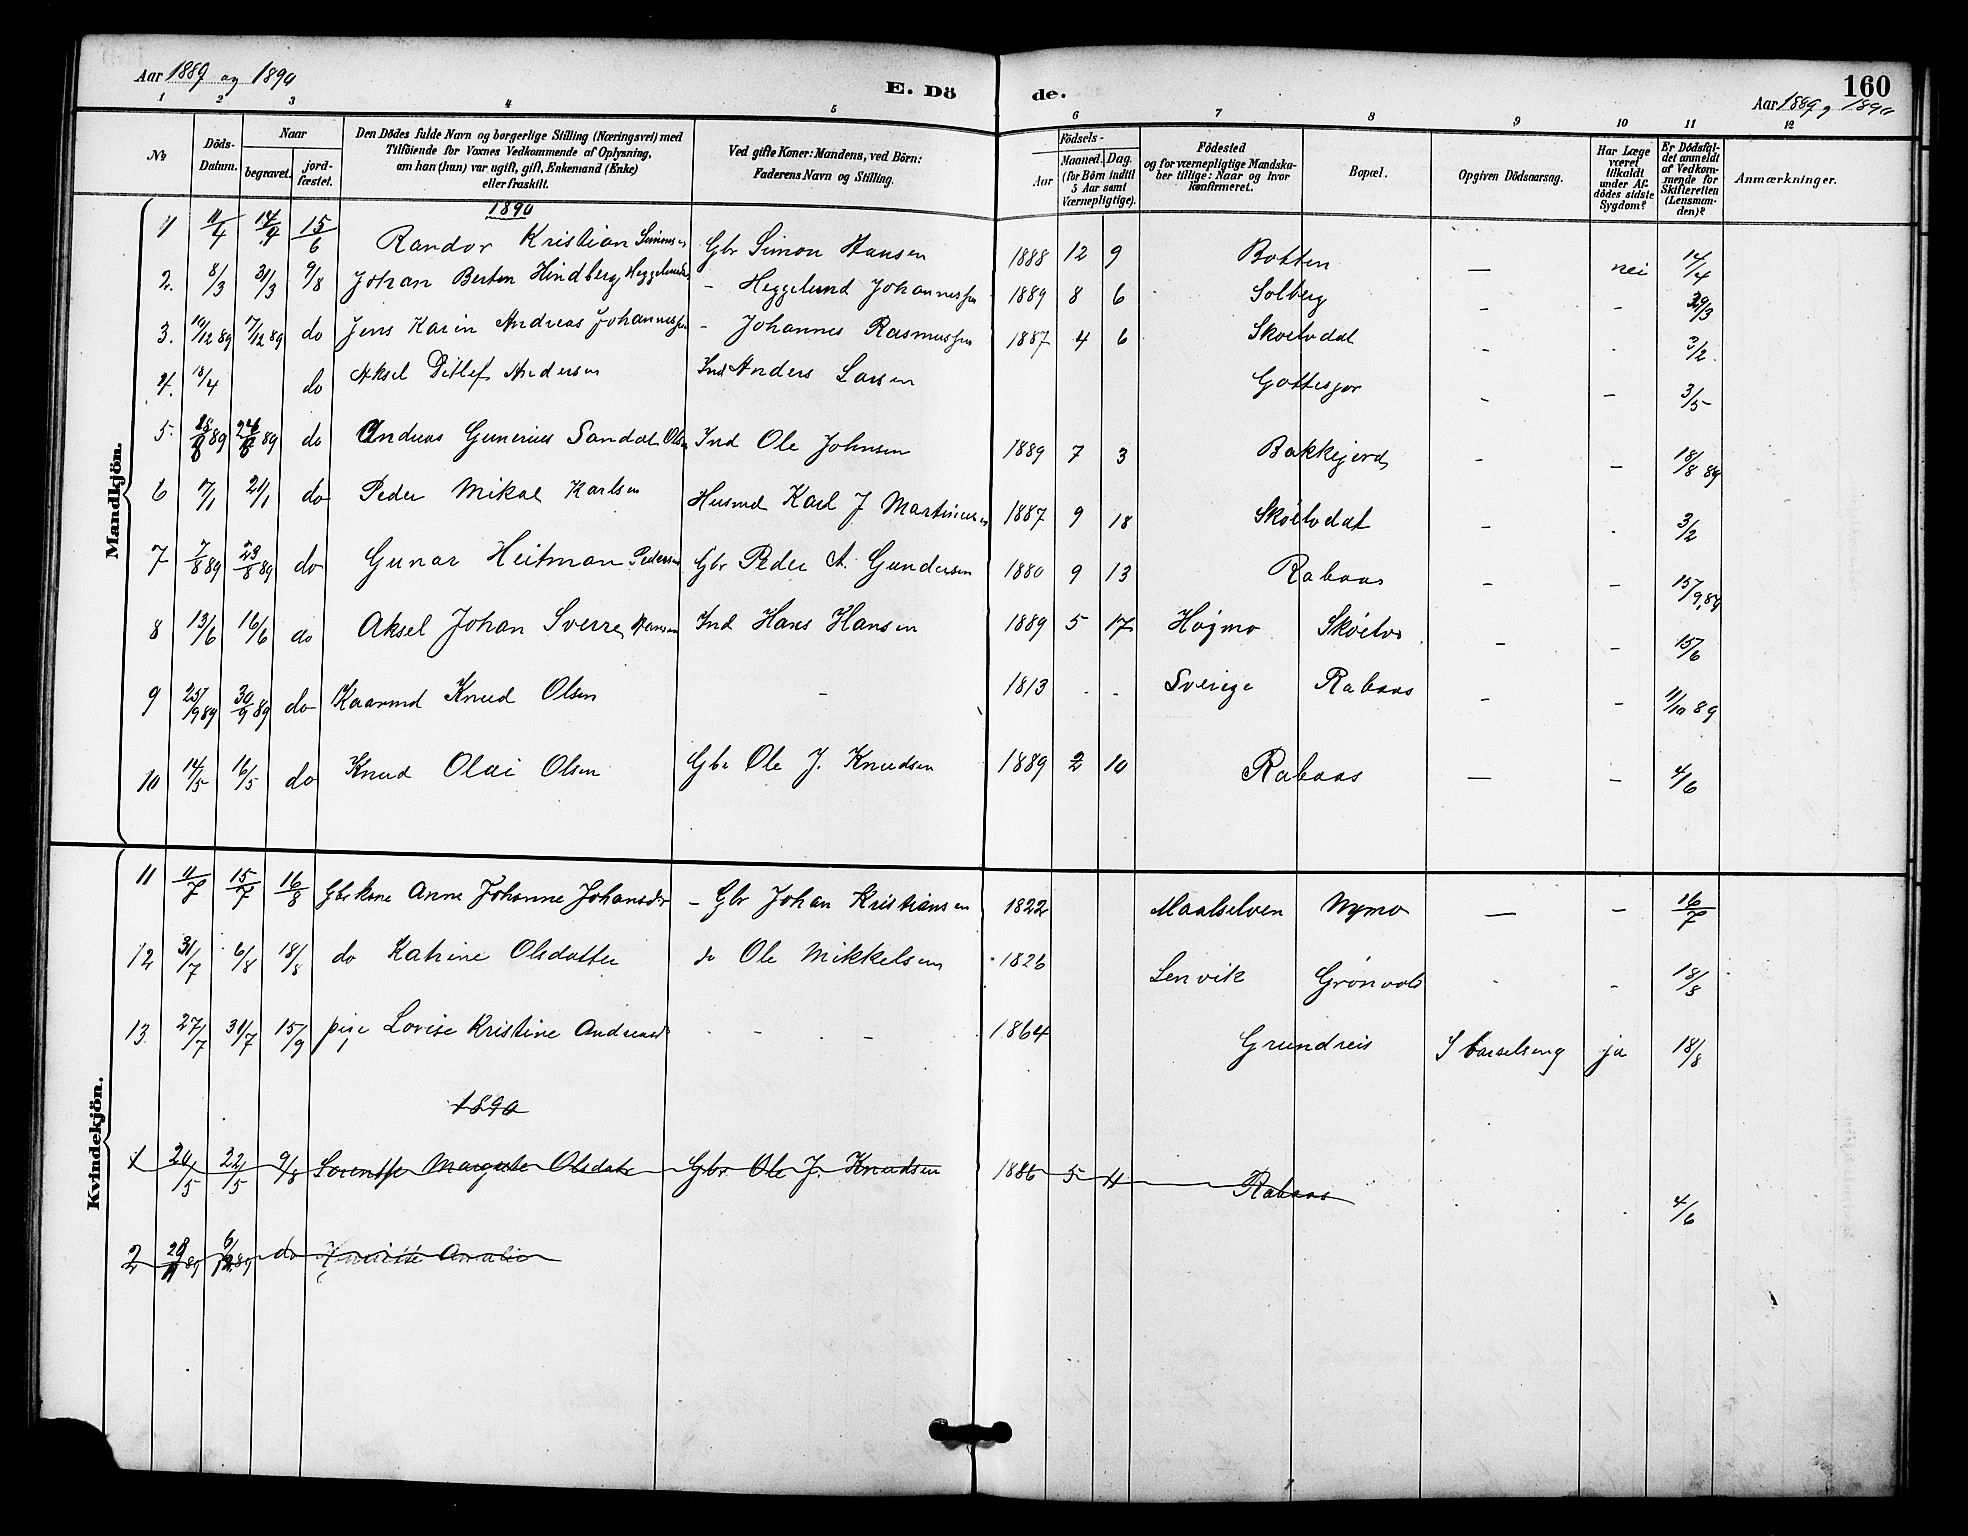 Aar 1889 og 1890
E. Dö
de.
160
Aar 1889 og 1890
1 2 3 4 5 6 7 8 9 10 11 12
No
Döds-Datum.
Naar
begravet.
jord-fæstet.
Den Dödes fulde Navn og borgerlige Stilling (Næringsvei) med Tilföiende for Voxnes Vedkommende af Oplysning, om han (hun) var ugift, gift, Enkemand (Enke) eller fraskilt.
Ved gifte Koner: Mandens, ved Börn: Faderens Navn og Stilling.
Födsels-
Aar
Maaned. Dag.
(for Börn indtil 5 Aar samt Værnepligtige).
Födested og for værnepligtige Mandska-ber tillige: Naar og hvor konfirmeret.
Bopæl.
Opgiven Dödsaarsag.
Har Læge været tilkaldt under Af-dödes sidste Sygdom?
Er Dödsfal-det anmeldt af Vedkom-mende for Skifteretten (Lensman-den)?
Anmærkninger.
Mandkjön.
1890
1 11/4 14/4 15/6 Randor Kristian Simonsen Gbr Simon Hansen 1888 12 9 Botten — nei 14/4
2. 8/3 31/3 9/8 Johan Berton Hindberg - Heggelund Johannessen 1889 8 6 Solberg - - 29/3
3. 10/12 89 17/12 89 do Jens Karin Andreas Johannessen - Johannes Rasmussen 1887 4 6 Skoelvdal - . 3/2.
4. 18/4 do Aksel Ditlef Andersen Ind Anders Larsen Gottesjor - - 3/5
5. 89 89 do Andreas Gunerius Sandal Olsen Ind Ole Johnsen 1889 7 3 Bakkejord - - 18/8 89
6 17/1 21/1 do Peder Mikal Karlsen Husmd Karl J Martinussen 1887 9 18 Skoelvdal - . 3/2
7 7/8 89 23/8 89 do Gunar Heitman Pedersen Gbr Peder A. Gundersen 1880 9 13 Rabaas - - 15/9, 89
8 13/6 16/6 do Aksel Johan Sverre Hansen Ind Hans Hansen 1889 5 17 Højmo Skoelv - - 15/6
9 25/9 89 30/9 89 do Kaarmd Knud Olsen - 1813 . . Sverige Rabaas - - 11/10 89
10 14/5 16/5 do Knud Olai Olsen Gbr Ole J. Knudsen 1889 2 10 Rabaas — - 4/6
Kvindekjön.
11 11/7 15/7 16/8 Gbrkone Anne Johanne Johansdr - Gbr Johan Kristiansen 1822 Maalselven Nymo — - 16/7
12 31/7 6/8 18/8 do Katrine Olsdatter do Ole Mikkelsen 1826 Lenvik Grönvold - - 18/8
13 27/7 31/7 15/9 pige Lovise Kristine Andreasd - - 1864 Grundreis I barselseng ja 18/8
1890
1 20/5 22/5 9/8 Margrete Olsdatr Gbr Ole J. Knudsen 1886 5 11 Rabaas 4/6
2 89 89 do Henriette Amalie